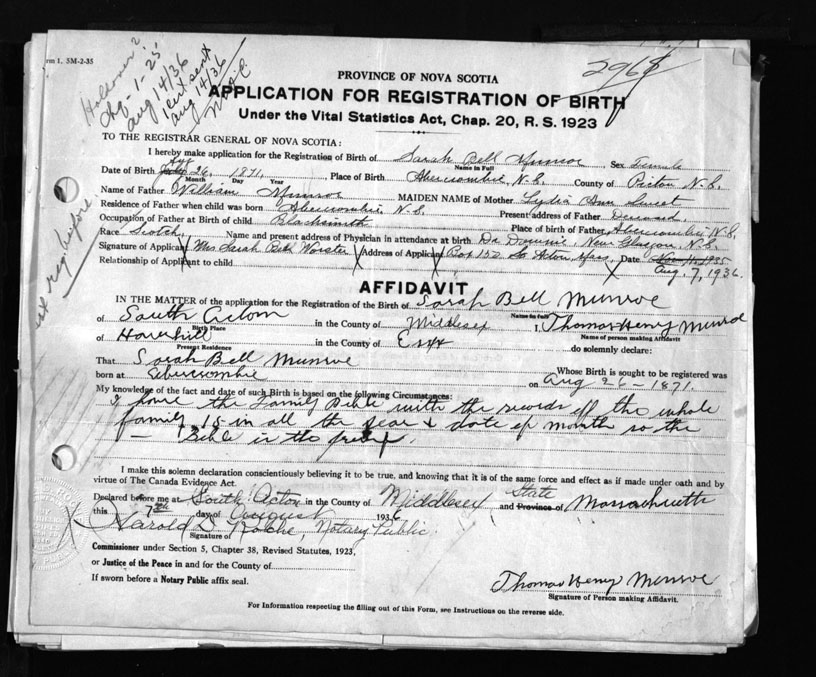 rm 1. 3M-2-35
2968
Aug 14/36
Aug 14/36
PROVINCE OF NOVA SCOTIA
APPLICATION FOR REGISTRATION OF BIRTH
Under the Vital Statistics Act, Chap. 20, R. S. 1923
TO THE REGISTRAR GENERAL OF NOVA SCOTIA:
I hereby make application for the Registration of Birth of Sarah Bell Munroe Sex Female
Name in Full
Date of Birth Aug 26. 1871. Place of Birth Abercrombie, N.S. County of Pictou N.S.
Month Day Year
Name of Father William Munroe MAIDEN NAME of Mother Lydia Ann Sweet
Residence of Father when child was born Abercombie. N.S. Present address of Father Deceased
Occupation of Father at Birth of child Blacksmith Place of birth of Father Abercombie N.S.
Race Scotch. Name and present address of Physician in attendance at birth Dr New Glasgow, N.S.
Signature of Applicant Mrs Sarah Bell Address of Applicant Box 152 So. Acton Mass. Date Nov. 11, 1935
Relationship of Applicant to child Aug. 7, 1936.
AFFIDAVIT
IN THE MATTER of the application for the Registration of the Birth of Sarah Bell Munroe
Name in full
of South Acton in the County of Middlesex I, Thomas Henry Munroe
Birth Place Name of person making Affidavit
of Haverhill in the County of Essex do solemnly declare:
Present Residence
That Sarah Bell Munroe Whose Birth is sought to be registered was
born at Abercrombie on Aug 26 - 1871.
My knowledge of the fact and date of such Birth is based on the following Circumstances:
I have the Family Bible with the records of the whole
family is in all the year & date of month so the
— Bible is the proof.
I make this solemn declaration conscientiously believing it to be true, and knowing that it is of the same force and effect as if made under oath and by
virtue of The Canada Evidence Act.
Declared before me at South Acton in the County of Middlesex and State Province of Massachusetts
this 7th day of August 1936
Harold D. Notary Public
Signature of
Commissioner under Section 5, Chapter 38, Revised Statutes, 1923,
or Justice of the Peace in and for the County of
If sworn before a Notary Public affix seal.
Thomas Henry Munroe
Signature of Person making Affidavit.
For Information respecting the filling out of this Form, see Instructions on the reverse side.